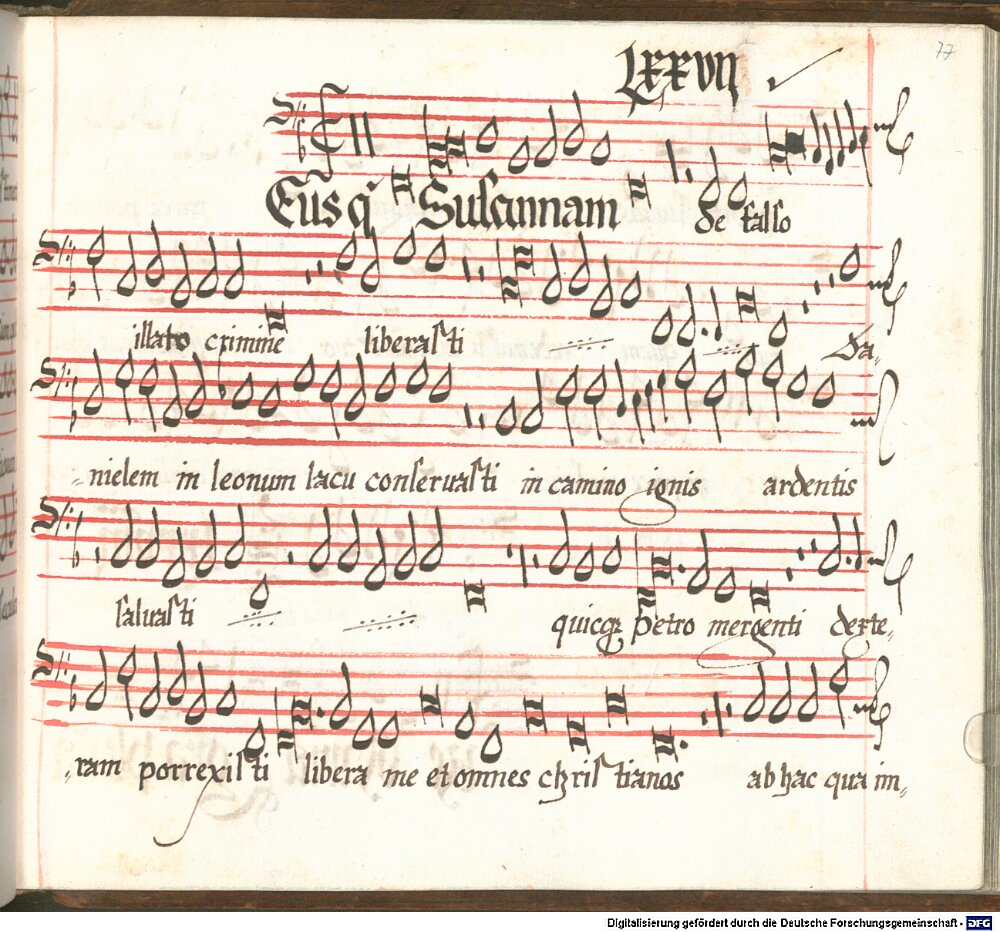 LXXVII
77
Eus q Susannam de falso
illato crimine liberasti Da-
nielem in leonum lacu conseruasti in camino ignis ardentis
saluasti quicqz petro mergenti dexte-
ram porrexisti libera me et omnes christianos ab hac qua im-
Digitalisierung gefördert durch die Deutsche Forschungsgemeinschaft - DFG